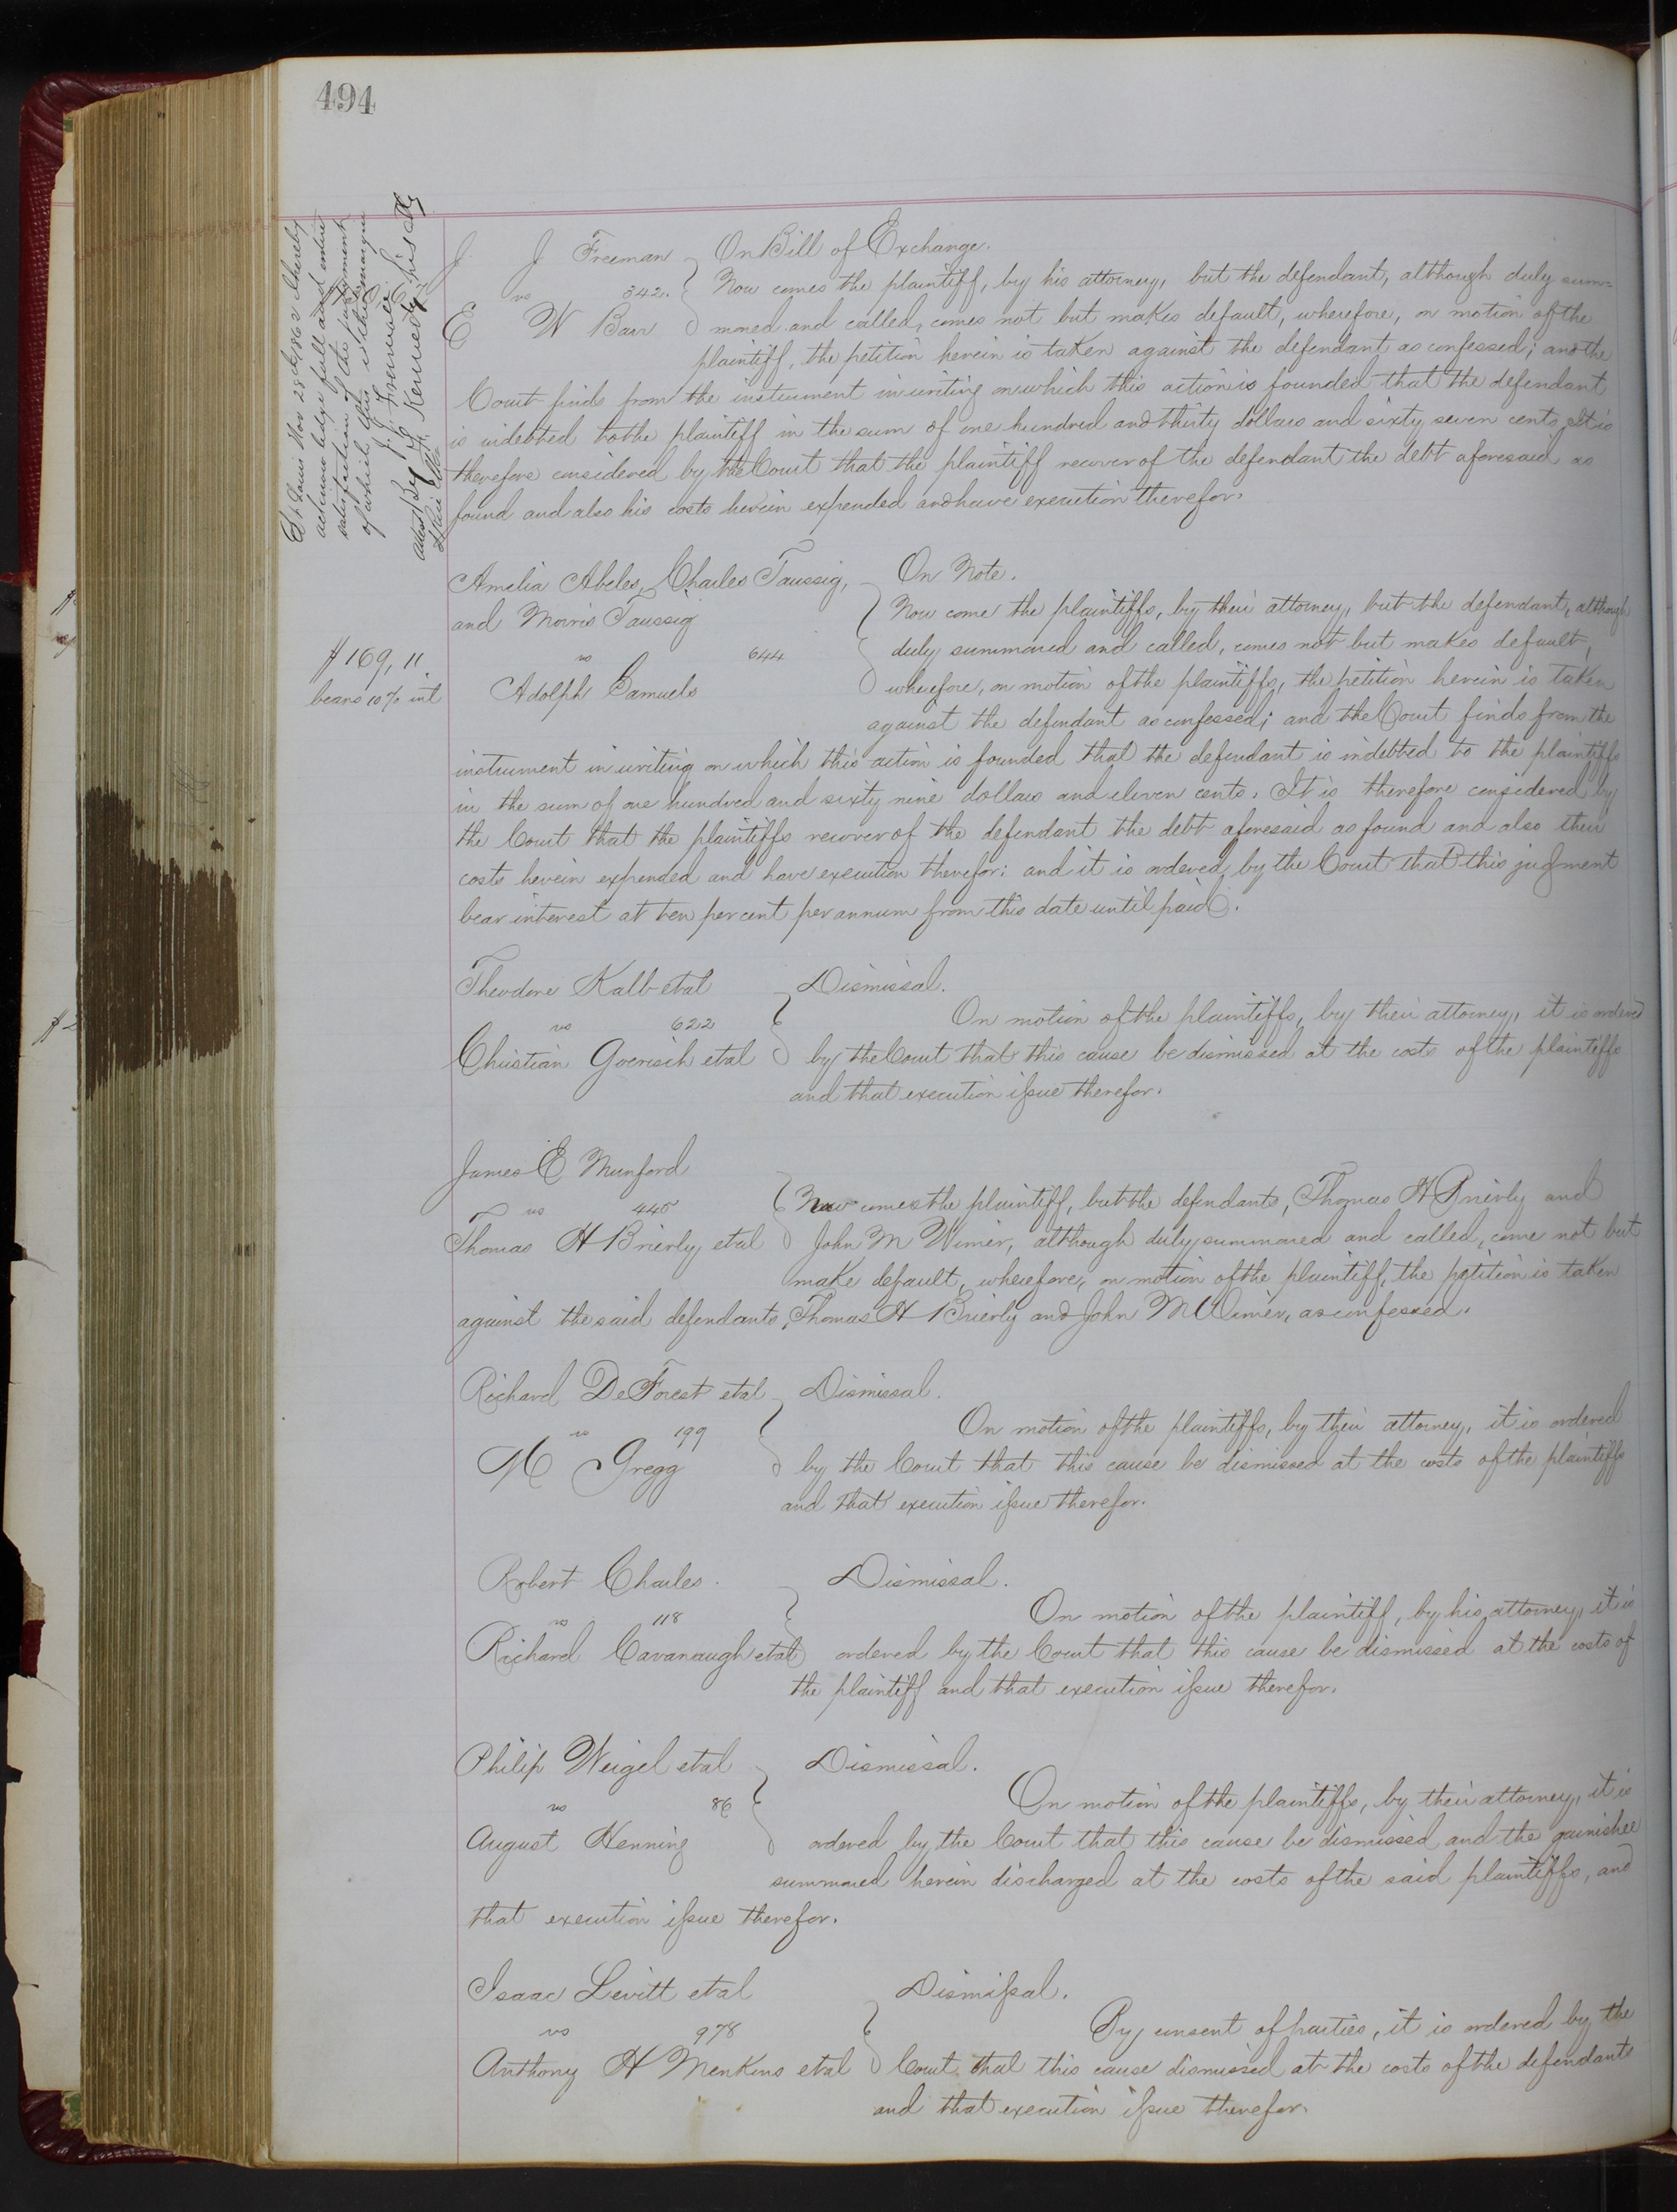 494
St Louis Nov 28th 1862 I hereby
acknowledge full and entire
satisfaction of the judgment
of which this is the margin
J. J. Freeman
By H. Kennedy his Atty
Attest
J J Freeman
vs 342.
E W Barr
On Bill of Exchange.
Now comes the plaintiff, by his attorney, but the defendant, although duly sum=
moned and called, comes not but makes default, wherefore, on motion of the
plaintiff, the petition herein is taken against the defendant as confessed; and the
Court finds from the instrument in writing on which this action is founded that the defendant
is indebted to the plaintiff in the sum of one hundred and thirty dollars and sixty seven cents. It is
therefore considered by the Court that the plaintiff recover of the defendant the debt aforesaid as
found and also his costs herein expended and have execution therefor.
Amelia Abeles, Charles Taussig,
and Morris Taussig
vs 644
Adolph Samuels
$169,11
bears 10% int
On Note.
Now come the plaintiffs, by their attorney, but the defendant, although
duly summoned and called, comes not but makes default,
wherefore, on motion of the plaintiffs, the petition herein is taken
against the defendant as confessed; and the Court finds from the
instrument in writing on which this action is founded that the defendant is indebted to the plaintiffs
in the sum of one hundred and sixty nine dollars and eleven cents. It is therefore considered by
the Court that the plaintiffs recover of the defendant the debt aforesaid as found and also their
costs herein expended and have execution therefor: and it is ordered by the Court that this judgment
bear interest at ten per cent per annum from this date until paid.
Theodore Kalb etal
vs 622
Christian Goerisch etal
Dismissal.
On motion of the plaintiffs, by their attorney, it is ordered
by the Court that this cause be dismissed at the costs of the plaintiffs
and that execution issue therefor.
James E Munford
vs 445
Thomas H Brierly etal
Now comes the plaintiff, but the defendants, Thomas H Brierly and
John M Wimer, although duly summoned and called, come not but
make default, wherefore, on motion of the plaintiff, the petition is taken
against the said defendants, Thomas H Brierly and John M Wimer, as confessed.
Richard DeForest etal
vs 199
M Gregg
Dismissal.
On motion of the plaintiffs, by their attorney, it is ordered
by the Court that this cause be dismissed at the costs of the plaintiffs
and that execution issue therefor.
Robert Charles.
vs 118
Richard Cavanaugh etal
Dismissal.
On motion of the plaintiff, by his attorney, it is
ordered by the Court that this cause be dismissed at the costs of
the plaintiff and that execution issue therefor.
Philip Weigel etal
vs 86
August Henning
Dismissal.
On motion of the plaintiffs, by their attorney, it is
ordered by the Court that this cause be dismissed and the garnishee
summoned herein discharged at the costs of the said plaintiffs, and
that execution issue therefor.
Isaac Levitt etal
vs 978
Anthony H Menkins etal
Dismissal.
By consent of parties, it is ordered by the
Court that this cause dismissed at the costs of the defendants
and that execution issue therefor.